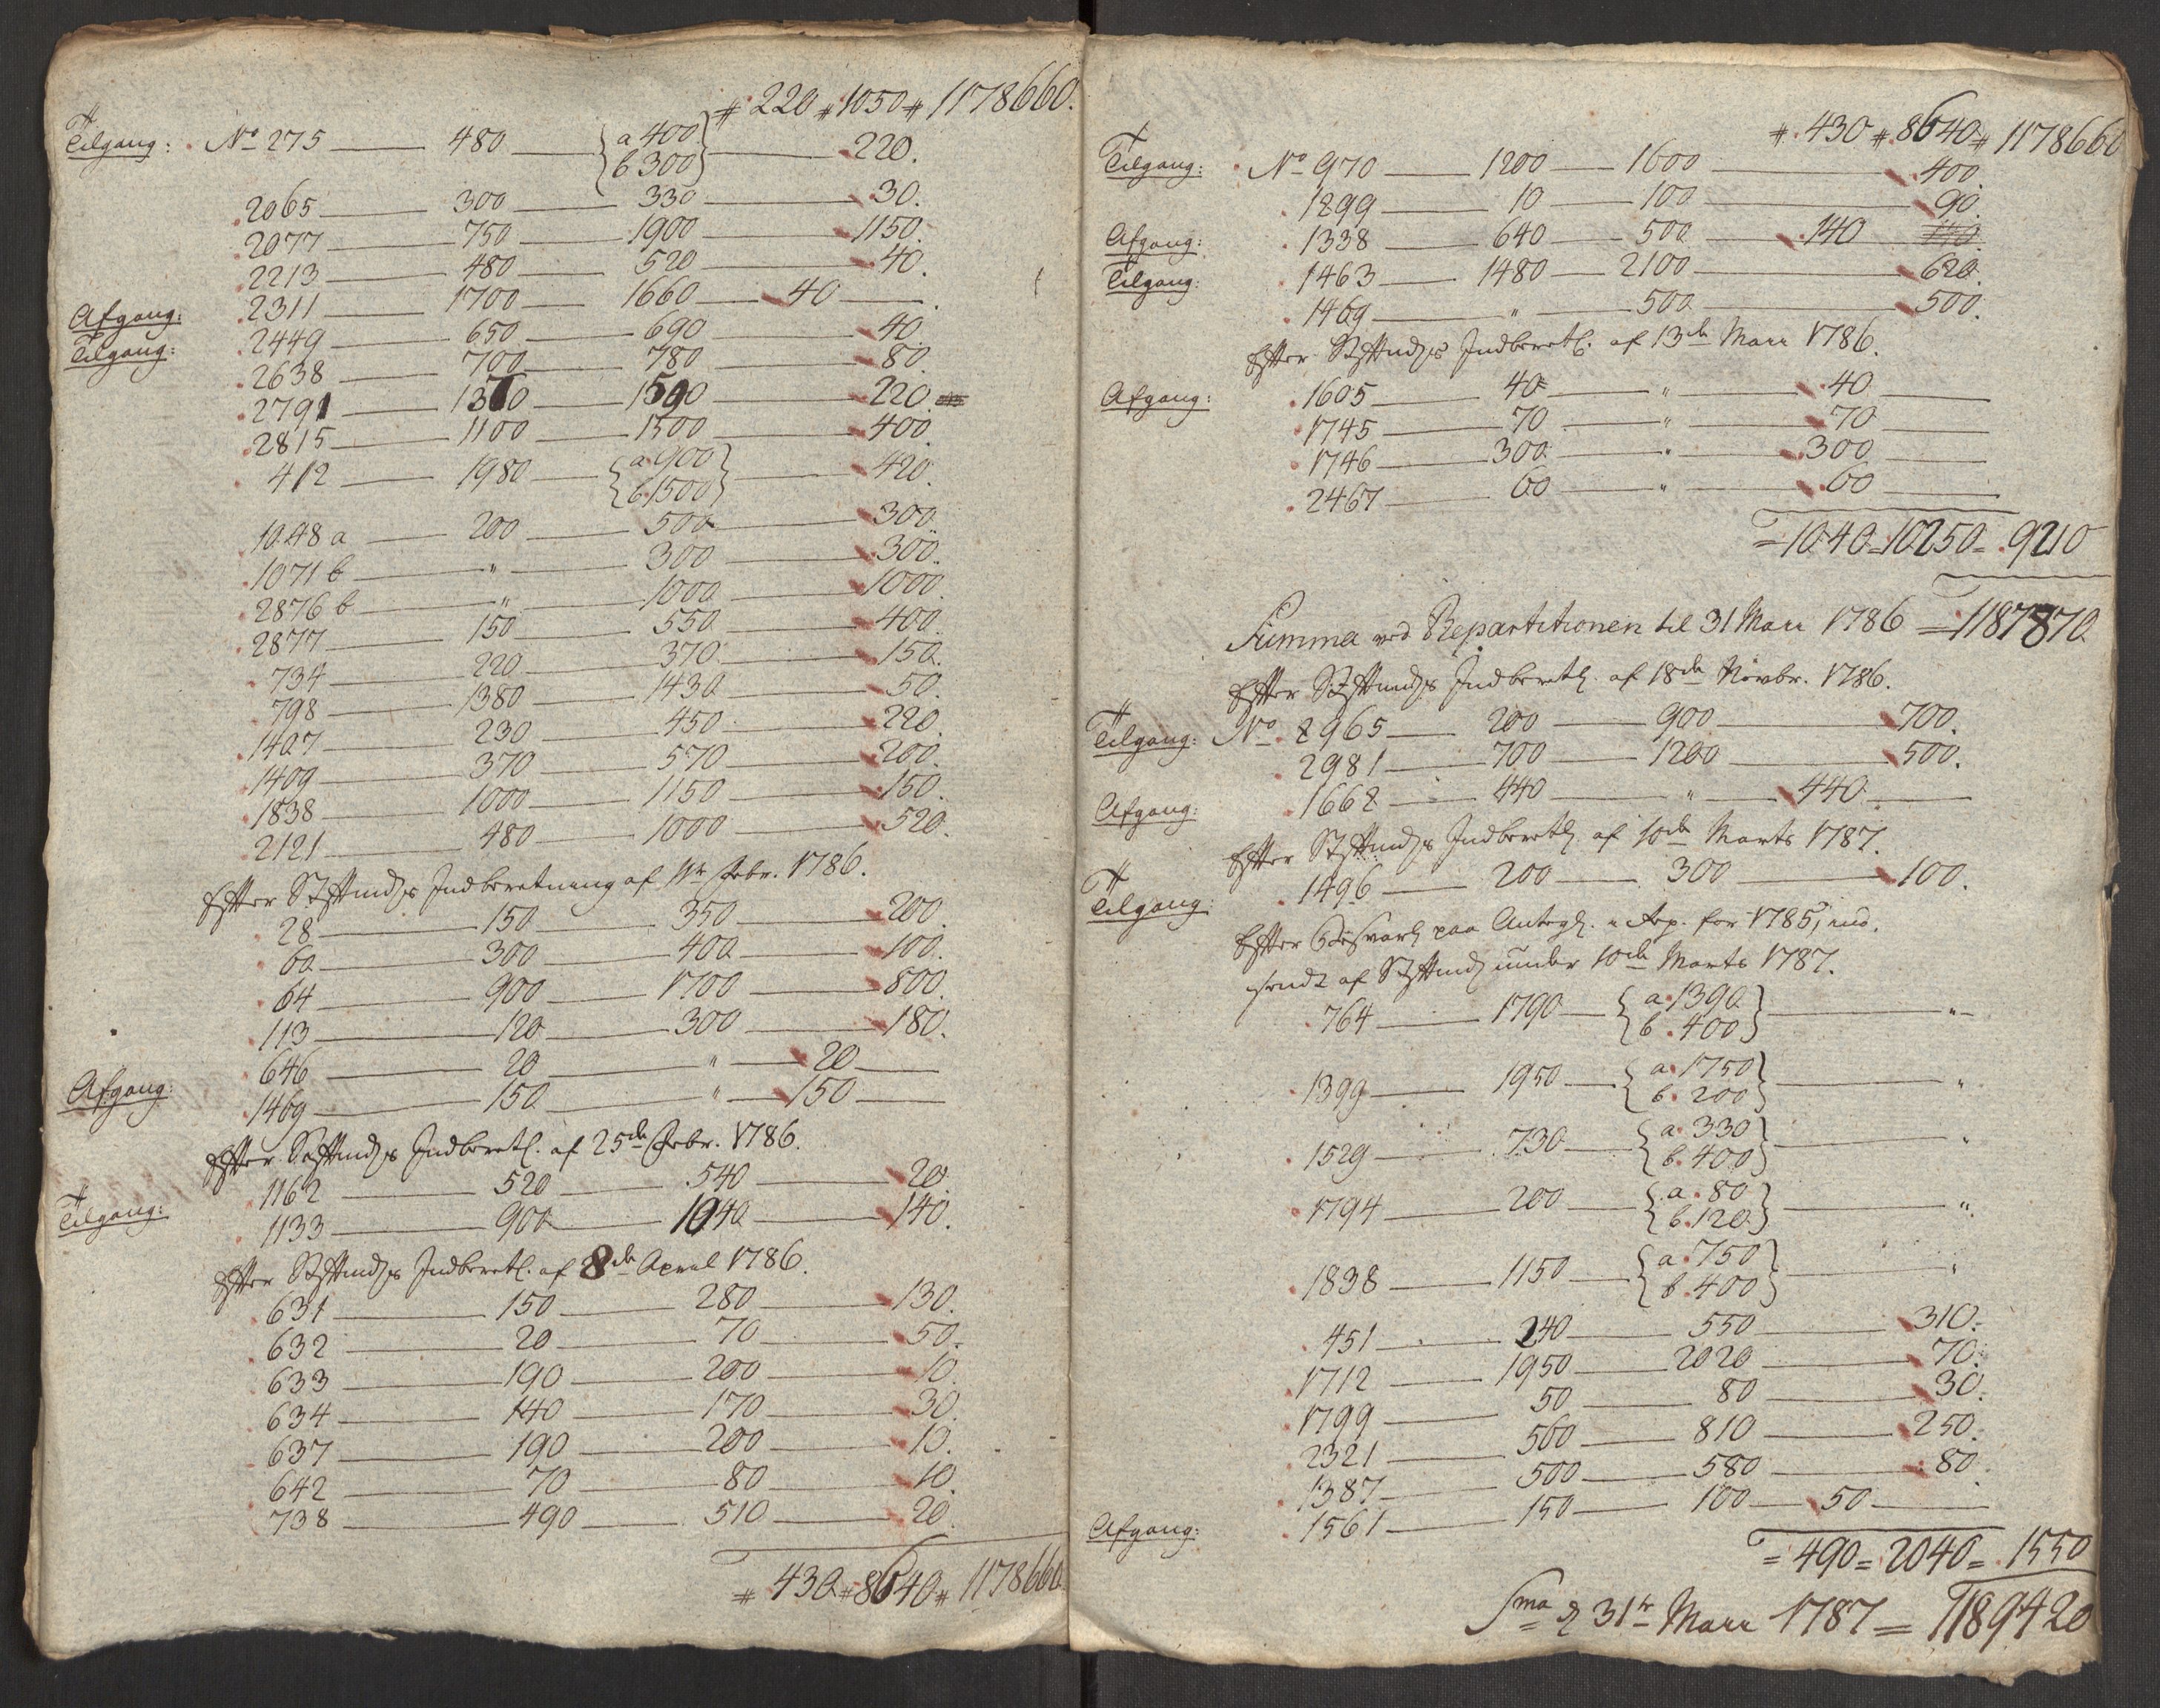 # 220 # 1050 # 1178660.
Tilgang: No 275 — 480 — {a 400 b 300} — 220.
2065 — 300 — 330 — 30.
2077 — 750 — 1900 — 1150.
2213 — 480 — 520 — 40.
Afgang: 2311 — 1700 — 1660 — 40 —
Tilgang: 2449 — 650 — 690 — 40.
2638 — 700 — 780 — 80.
2791 — 1370 — 1590 — 220.
2815 — 1100 — 1500 — 400.
412 — 1980 — {a. 900 b. 1500} — 420.
1048 a — 200 — 500 — 300.
1071 b — " — 300 — 300.
2876 b — " — 1000 — 1000.
2877 — 150 — 550 — 400.
734 — 220 — 370 — 150.
798 — 1380 — 1430 — 50.
1407 — 230 — 450 — 220.
1409 — 370 — 570 — 200.
1838 — 1000 — 1150 — 150.
2121 — 480 — 1000 — 520.
Efter Indberetning af Febr. 1786.
28 — 150 — 350 — 200.
60 — 300 — 400 — 100.
64 — 900 — 1700 — 800.
113 — 120 — 300 — 180.
Afgang: 646 — 20 — " — 20 —
1469 — 150 — " — 150 —
Efter Indberetn. af 25de Febr. 1786.
Tilgang: 1162 — 520 — 540 — 20.
1133 — 900 — 1040 — 140.
Efter Indberetn. af 8de April 1786.
631 — 150 — 280 — 130.
632 — 20 — 70 — 50.
633 — 190 — 200 — 10.
634 — 140 — 170 — 30.
637 — 190 — 200 — 10.
642 — 70 — 80 — 10.
738 — 490 — 510 — 20.
# 430 # 8640 # 1178660.
# 430 # 8640 # 1178660
Tilgang: No 970 — 1200 — 1600 — 400.
1899 — 10 — 100 — 90.
Afgang: 1338 — 640 — 500 — 140 140.
Tilgang: 1463 — 1480 — 2100 — 620.
1469 — " — 500 — 500.
Efter Indberetn. af 13de Maii 1786.
Afgang: 1605 — 40 — " — 40 —
1745 — 70 — " — 70 —
1746 — 300 — " — 300 —
2467 — 60 — " — 60 —
= 1040 = 10250 = 9210
Summa ved Repartitionen til 31 Maii 1786 = 1187870
Efter Indberetn. af 18de Novbr. 1786.
Tilgang: No 2965 — 200 — 900 — 700.
2981 — 700 — 1200 — 500.
Afgang: 1668 — 440 — " — 440 —
Efter Indberetn. af 10de Marts 1787.
Tilgang: 1496 — 200 — 300 — 100.
Efter paa Antegn. Rep. for 1785, ind.
sendt af under 10de Marts 1787.
764 — 1790 — {a. 1390 b. 400} — "
1399 — 1950 — {a. 1750 b. 200} — "
1529 — 730 — {a. 330 b. 400} — "
1794 — 200 — {a. 80 b. 120} — "
1838 — 1150 — {a. 750 b. 400} — "
451 — 240 — 550 — 310.
1712 — 1950 — 2020 — 70.
1799 — 50 — 80 — 30.
2321 — 560 — 810 — 250.
1387 — 500 — 580 — 80.
Afgang: 1561 — 150 — 100 — 50 —
= 490 = 2040 = 1550
Sma d 31te Maii 1787 = 1189420